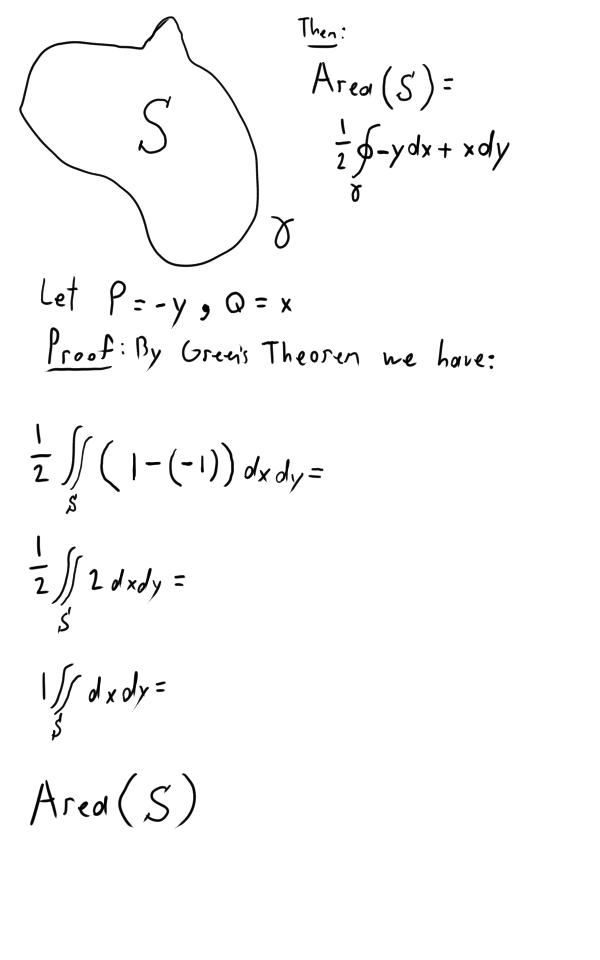 Then:
Area(S) =
1/2 ∮_γ -ydx + xdy
S
γ
Let P = -y, Q = x
Proof: By Green's Theoren we have:
1/2 ∬_S (1-(-1)) dxdy =
1/2 ∬_S 2 dxdy =
1∬_S dxdy =
Area(S)